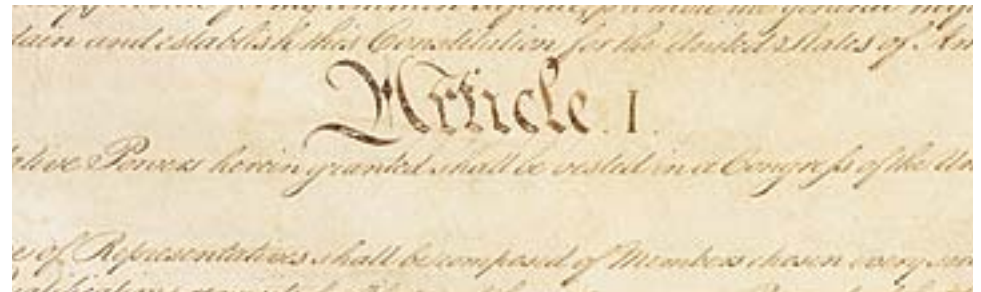 dain and establish this Constitution for the United States of Am
Article. I.
lative Powers herein granted shall be vested in a Congress of the Un
e of Representatives shall be composed of Members chosen every seco